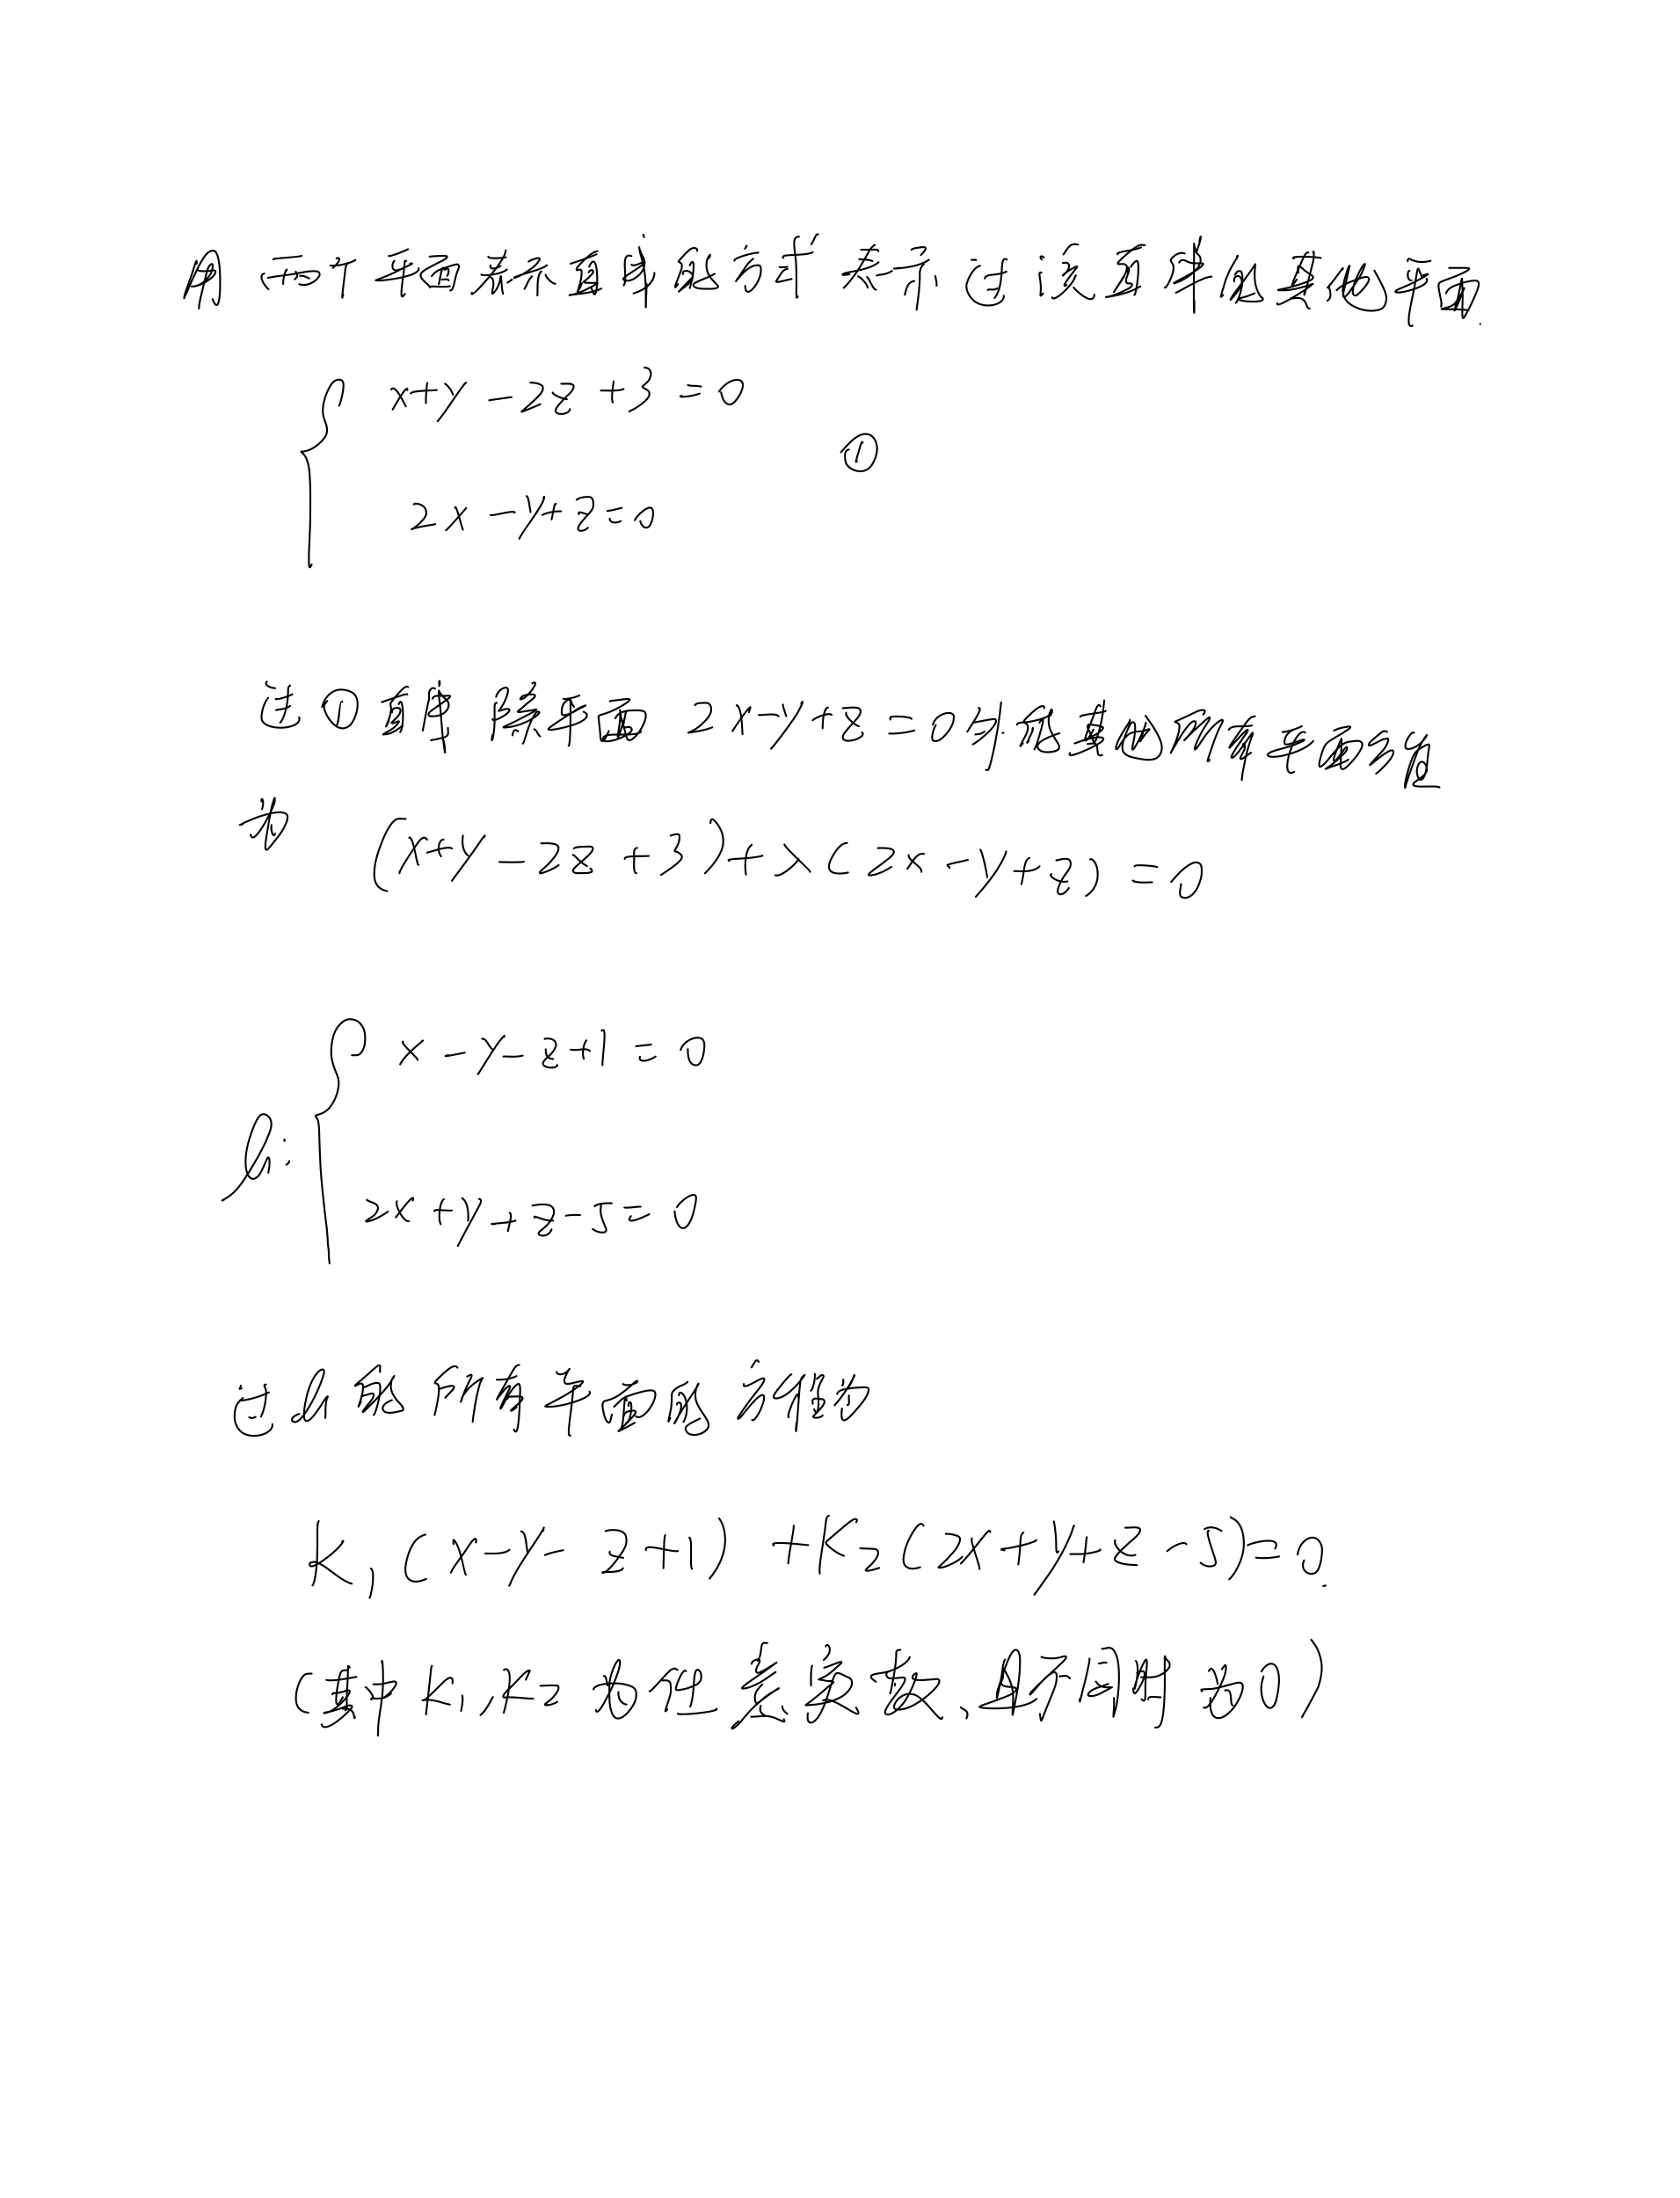 用两个平面表示直线的方式表示过该直线的其他平面.
x+y-2z+3=0
①
2x-y+z=0
过①直线除平面2x-y+z=0外的其他所有平面方程
为 (x+y-2z+3)+λ(2x-y+z)=0
x-y-z+1=0
l1:
2x+y+z-5=0
过l1的所有平面的方程为
K1(x-y-z+1)+K2(2x+y+z-5)=0.
(其中K1,K2为任意实数,且不同时为0)